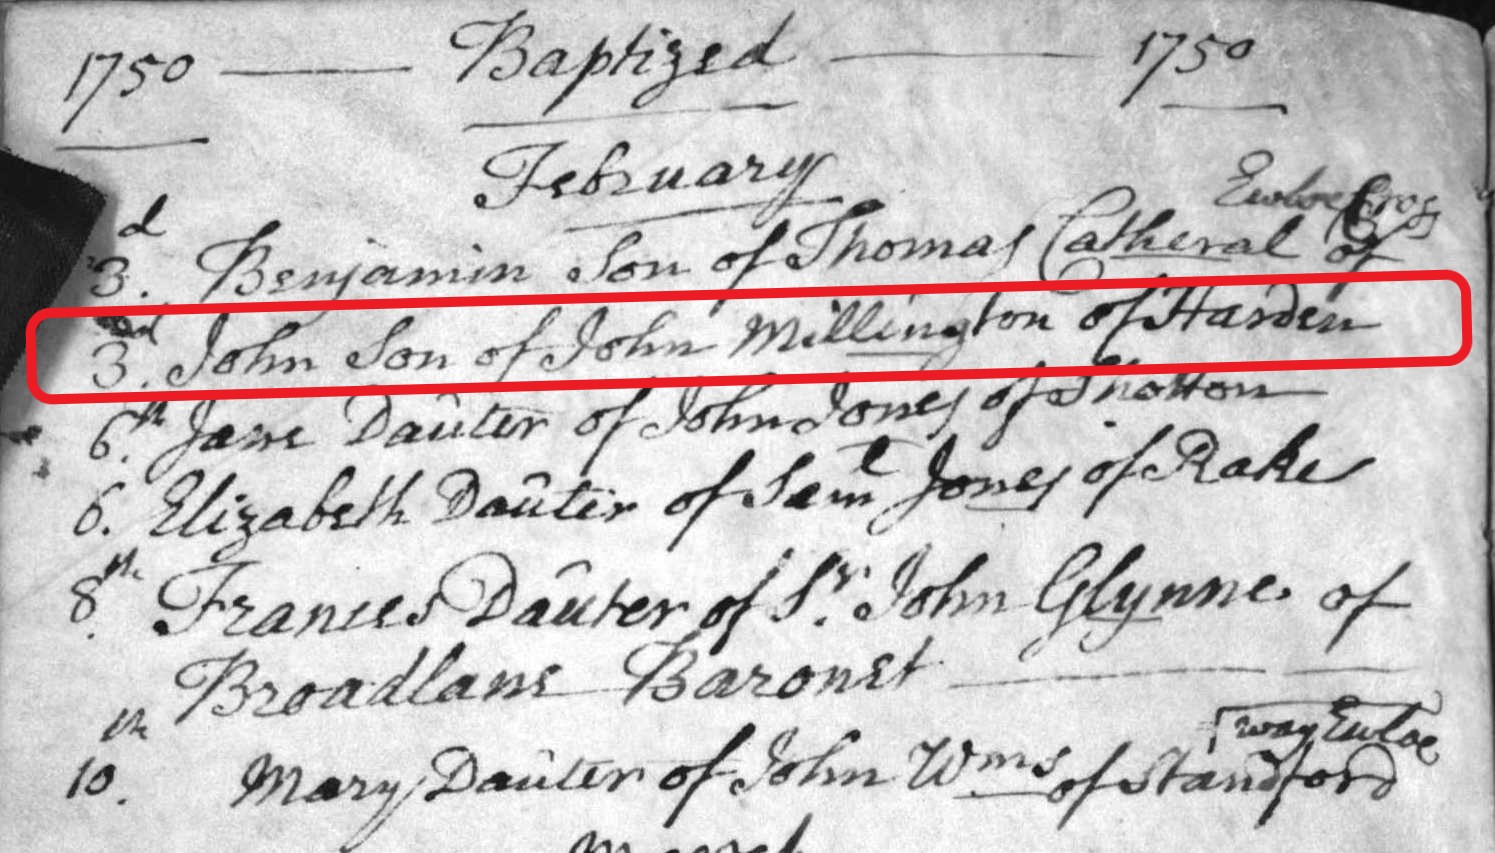 1750 Baptized 1750
February
Ewloe Cross
3.d Benjamin Son of Thomas Catheral of
3.d John Son of John Millington of Harden
6.th Jane Dauter of John Jones of Shotton
6. Elizabeth Daûter of Saml Jones of Rake
8.th Frances Daûter of Sr. John Glynne of
Broadlane Baronet
way Ewloe
10.th Mary Daûter of John Wms of Standford
March